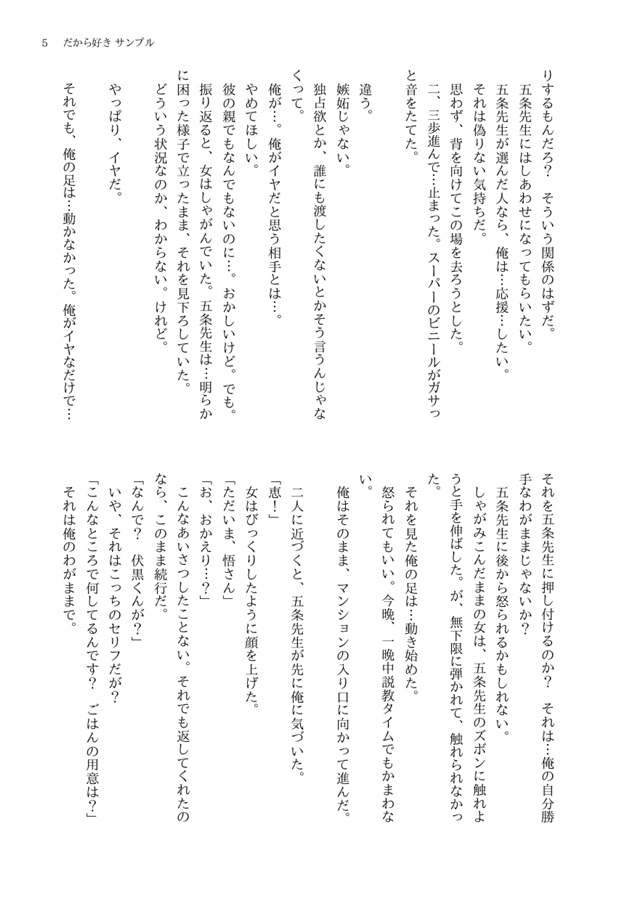 5　だから好き サンプル
りするもんだろ？　そういう関係のはずだ。
　五条先生にはしあわせになってもらいたい。
　五条先生が選んだ人なら、俺は…応援…したい。
　それは偽りない気持ちだ。
　思わず、背を向けてこの場を去ろうとした。
　二、三歩進んで…止まった。スーパーのビニールがガサっ
と音をたてた。
　違う。
　嫉妬じゃない。
　独占欲とか、誰にも渡したくないとかそう言うんじゃな
くって。
　俺が…。俺がイヤだと思う相手とは…。
　やめてほしい。
　彼の親でもなんでもないのに…。おかしいけど。でも。
　振り返ると、女はしゃがんでいた。五条先生は…明らか
に困った様子で立ったまま、それを見下ろしていた。
　どういう状況なのか、わからない。けれど。
　やっぱり、イヤだ。
　それでも、俺の足は…動かなかった。俺がイヤなだけで…
それを五条先生に押し付けるのか？　それは…俺の自分勝
手なわがままじゃないか？
　五条先生に後から怒られるかもしれない。
　しゃがみこんだままの女は、五条先生のズボンに触れよ
うと手を伸ばした。が、無下限に弾かれて、触れられなかっ
た。
　それを見た俺の足は…動き始めた。
　怒られてもいい。今晩、一晩中説教タイムでもかまわな
い。
　俺はそのまま、マンションの入り口に向かって進んだ。
　二人に近づくと、五条先生が先に俺に気づいた。
「恵！」
　女はびっくりしたように顔を上げた。
「ただいま、悟さん」
「お、おかえり…？」
　こんなあいさつしたことない。それでも返してくれたの
なら、このまま続行だ。
「なんで？　伏黒くんが？」
　いや、それはこっちのセリフだが？
「こんなところで何してるんです？　ごはんの用意は？」
　それは俺のわがままで。